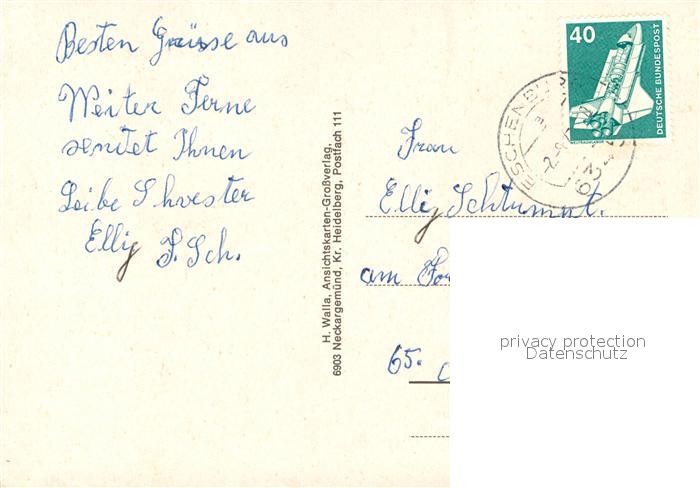 Besten Grüsse aus
Weiter Ferne
sendet Ihnen
Leibe Shvester
Ellig F. Sch.
H. Walla, Ansichtskarten-Großverlag,
6903 Neckargemünd, Kr. Heidelberg, Postfach 111
40
DEUTSCHE BUNDESPOST
WELTRAUMLABOR
Frau
Ellig Schtummt.
am
65.
privacy protection
Datenschutz